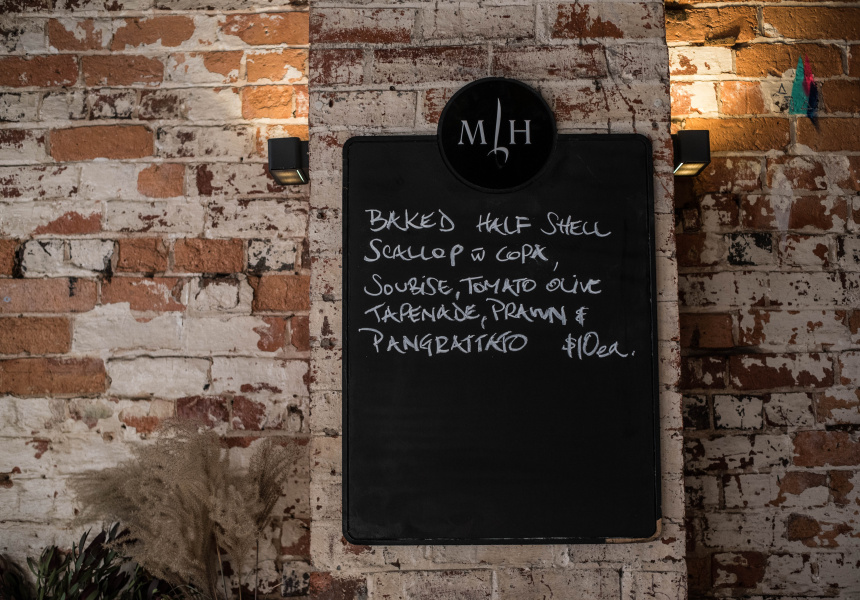 M H
BAKED HALF SHELL
SCALLOP w̄ COPA,
SOUBISE, TOMATO OLIVE
TAPENADE, PRAWN &
PANGRATTATO $10ea.